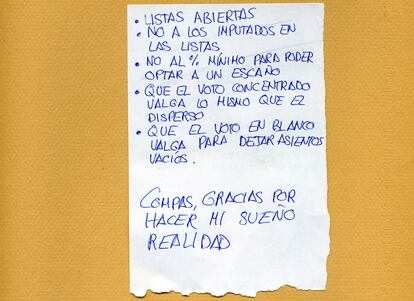 • LISTAS ABIERTAS
• NO A LOS IMPUTADOS EN
LAS LISTAS
• NO AL % MÍNIMO PARA PODER
OPTAR A UN ESCAÑO
• QUE EL VOTO CONCENTRADO
VALGA LO MISMO QUE EL
DISPERSO
• QUE EL VOTO EN BLANCO
VALGA PARA DEJAR ASIENTOS
VACÍOS.
COMPAS, GRACIAS POR
HACER MI SUEÑO
REALIDAD